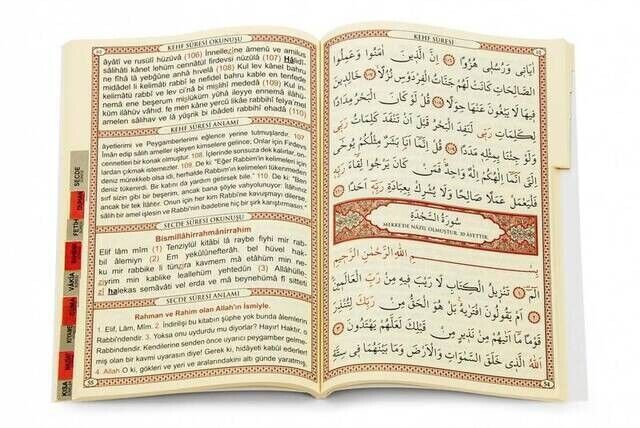 KEHF SÛRESİ OKUNUŞU
âyâtî ve rusulî hüzüvâ (106) İnnellezîne âmenû ve amilus
sâlihâti kânet lehüm cennâtül firdevsi nüzülâ (107) Hâlidî-
ne fîhâ lâ yebğûne anhâ hivelâ (108) Kul lev kânel bahru
midâdel li kelimâti rabbî le nefidel bahru kable en tenfede
kelimâtü rabbî ve lev ci'nâ bi mislihî mededâ (109) Kul in-
nemâ ene beşerum mislüküm yûhâ ileyye ennemâ ilâhü-
küm ilâhuv vâhid, fe men kâne yercû likâe rabbihî felya'mel
amelen sâlihav ve lâ yüşrik bi ibâdeti rabbihî ehadâ (110)
KEHF SÛRESİ ANLAMI
âyetlerimi ve Peygamberlerimi eğlence yerine tutmuşlardır. 107.
İman edip sâlih ameller işleyen kimselere gelince; Onlar için Firdevs
cennetleri bir konak olmuştur. 108. İçlerinde sonsuza dek kalırlar, on-
lardan çıkmak istemezler. 109. De ki: "Eğer Rabbim'in kelimeleri için
deniz mürekkeb olsa idi, herhalde Rabbim'in kelimeleri tükenmeden
deniz tükenirdi. Bir katını da yardım getirsek bile." 110. De ki: "Ben
sırf sizin gibi bir beşerim, ancak bana şöyle vahyolunuyor: İlâhınız
ancak bir tek İlâhtır. Onun için her kim Rabbi'ne kavuşmayı dilerse,
sâlih bir amel işlesin ve Rabbi'nin ibadetine hiç bir şirk karıştırmasın."
SECDE SÛRESİ OKUNUŞU
Bismillâhirrahmânirrahîm
Elif lâm mîm (1) Tenzîylül kitâbi lâ raybe fîyhi mir rab-
bil âlemîyn (2) Em yekûlûnefterâh, bel hüvel hak-
ku mir rabbike li tünzira kavmem mâ etâhüm min ne-
ziyrim min kablike leallehüm yehtedûn (3) Allâhülle-
zî halekas semâvâti vel erda ve mâ beynehümâ fî sitteti
SECDE SÛRESİ ANLAMI
Rahman ve Rahim olan Allah'ın İsmiyle.
1. Elif, Lâm, Mîm. 2. İndirilişi bu kitabın şüphe yok bunda âlemlerin
Rabbi'ndendir. 3. Yoksa onu uydurdu mu diyorlar? Hayır! Haktır, o
Rabbi'ndendir. Kendilerine senden önce uyarıcı peygamber gelme-
miş olan bir kavmi uyarasın diye! Gerek ki, hidâyeti kabûl ederler!
4. Allah O ki, gökleri ve yeri ve aralarındakini altı günde yaratmış,
SECDE
DUHAN
FETİH
VAKIA
KIYAME
KISA
KEHF SÛRESİ
اٰيَاتٖي وَرُسُلٖي هُزُوًا ﴿١٠٦﴾ اِنَّ الَّذٖينَ اٰمَنُوا وَعَمِلُوا
الصَّالِحَاتِ كَانَتْ لَهُمْ جَنَّاتُ الْفِرْدَوْسِ نُزُلًا ﴿١٠٧﴾ خَالِدٖينَ
فٖيهَا لَا يَبْغُونَ عَنْهَا حِوَلًا ﴿١٠٨﴾ قُلْ لَوْ كَانَ الْبَحْرُ مِدَادًا
لِكَلِمَاتِ رَبّٖي لَنَفِدَ الْبَحْرُ قَبْلَ اَنْ تَنْفَدَ كَلِمَاتُ رَبّٖي
وَلَوْ جِئْنَا بِمِثْلِهٖ مَدَدًا ﴿١٠٩﴾ قُلْ اِنَّمَا اَنَا بَشَرٌ مِثْلُكُمْ يُوحٰى
اِلَيَّ اَنَّمَا اِلٰهُكُمْ اِلٰهٌ وَاحِدٌ فَمَنْ كَانَ يَرْجُوا لِقَاءَ رَبِّهٖ
فَلْيَعْمَلْ عَمَلًا صَالِحًا وَلَا يُشْرِكْ بِعِبَادَةِ رَبِّهٖ اَحَدًا ﴿١١٠﴾
سُورَةُ السَّجْدَةِ
MEKKE'DE NÂZİL OLMUŞTUR. 30 ÂYETTİR.
بِسْمِ اللّٰهِ الرَّحْمٰنِ الرَّحٖيمِ
الٓمٓ ﴿١﴾ تَنْزٖيلُ الْكِتَابِ لَا رَيْبَ فٖيهِ مِنْ رَبِّ الْعَالَمٖينَ
﴿٢﴾ اَمْ يَقُولُونَ افْتَرٰيهُ بَلْ هُوَ الْحَقُّ مِنْ رَبِّكَ لِتُنْذِرَ
قَوْمًا مَا اَتٰيهُمْ مِنْ نَذٖيرٍ مِنْ قَبْلِكَ لَعَلَّهُمْ يَهْتَدُونَ ﴿٣﴾
اَللّٰهُ الَّذٖي خَلَقَ السَّمٰوَاتِ وَالْاَرْضَ وَمَا بَيْنَهُمَا فٖي سِتَّةِ